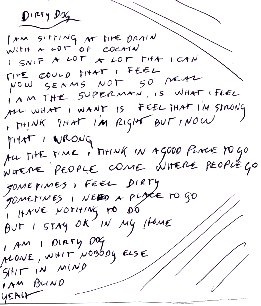 DIRTY DOG
I AM SITTING AT THE DRAIN
WITH A LOT OF COCAIN
I SNIF A LOT A LOT THA I CAN
THE COULD THAT I FEEL
NOW SEAMS NOT SO REAL
I AM THE SUPERMAN, IS WHAT I FEEL
ALL WHAT I WANT IS FEEL THAT I'M STRONG
I THINK THAT I'M RIGHT BUT I NOW
THAT I WRONG
ALL THE TIME I THINK IN A GOOD PLACE TO GO
WHERE PEOPLE COME WHERE PEOPLE GO
SOMETIMES I FEEL DIRTY
SOMETIMES I NEED A PLACE TO GO
I HAVE NOTHING TO DO
BUT I STAY OK IN MY HOME
I AM I DIRTY DOG
ALONE, WHIT NOBODY ELSE
SHIT IN MIND
I AM BLIND
YEAH